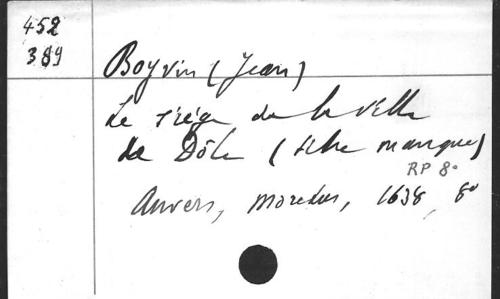 452
389
Boyvin (Jean)
Le siége de la ville
de Dôle (titre manque)
RP 8°
Anvers, Moretus, 1638, 8°